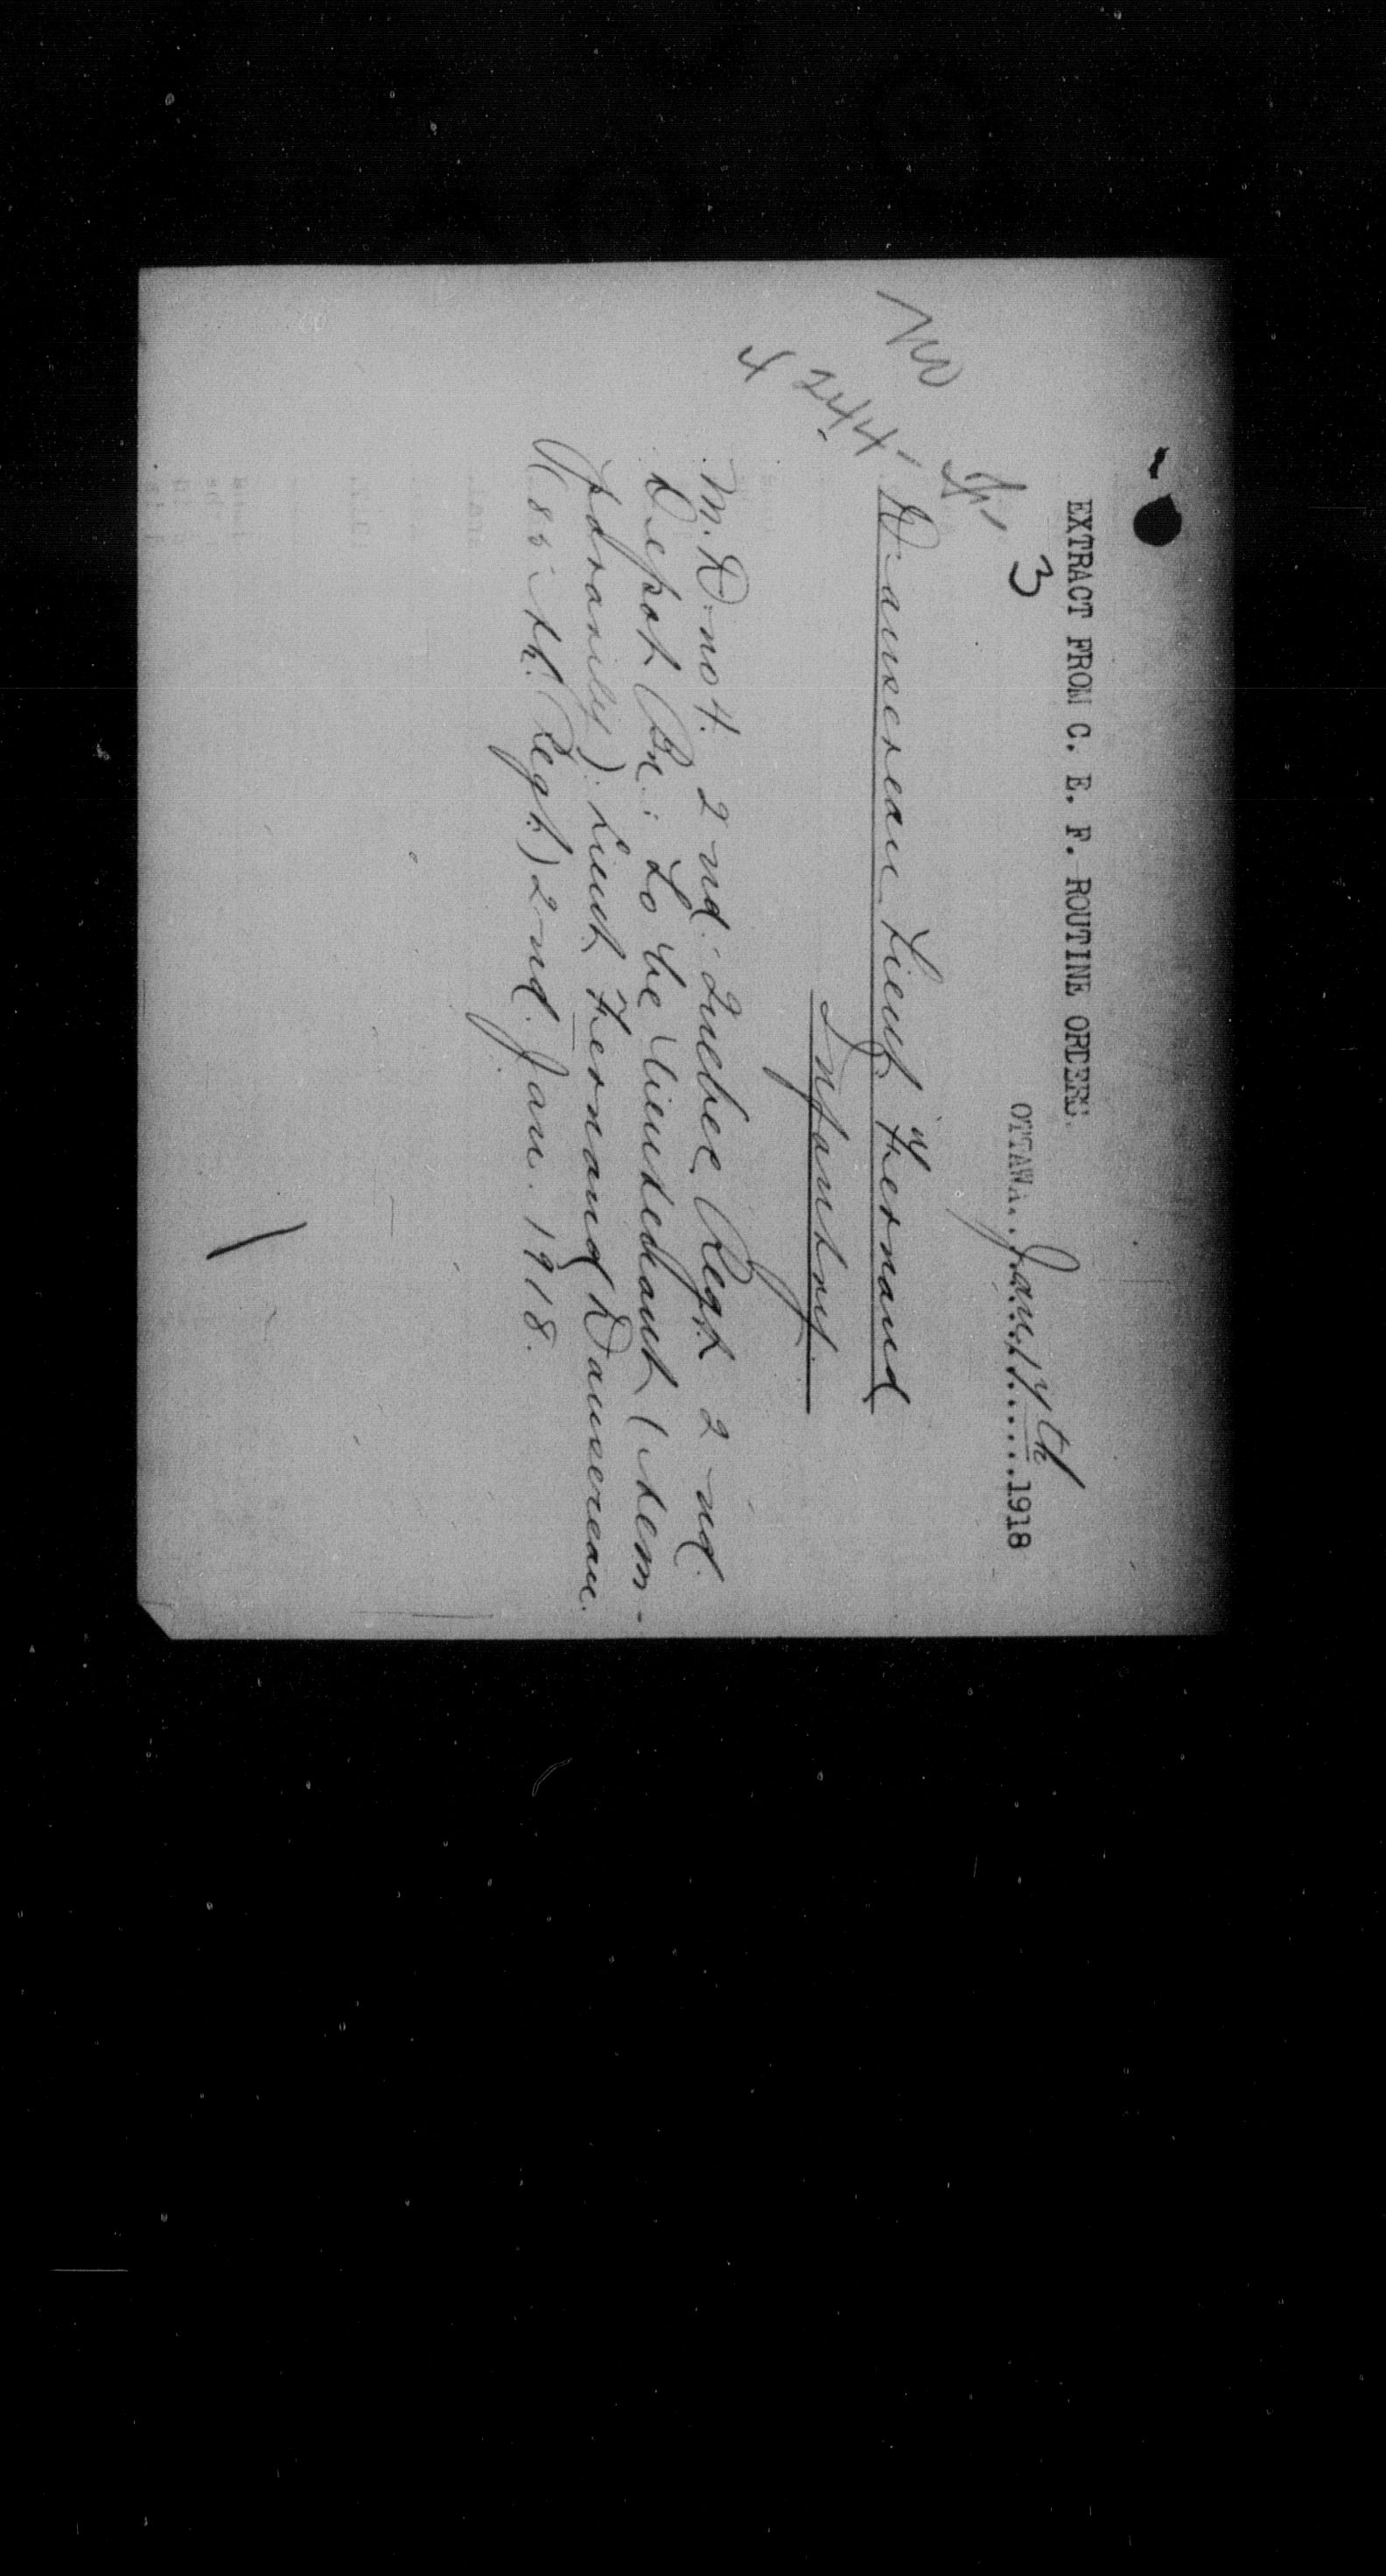 EXTRACT FROM C. E. F. ROUTINE ORDERS.
3 OTTAWA...Jany 17th.....1918
No
4244-
Dansereau Lieut. Fernand
Infantry.
M. D. no 4. 2nd. Quebec Regt 2nd.
Depot Bn: To be Lieutenant (tem-
porarily): Lieut Fernand Dansereau.
(85th. Regt) 2nd. Jan. 1918.